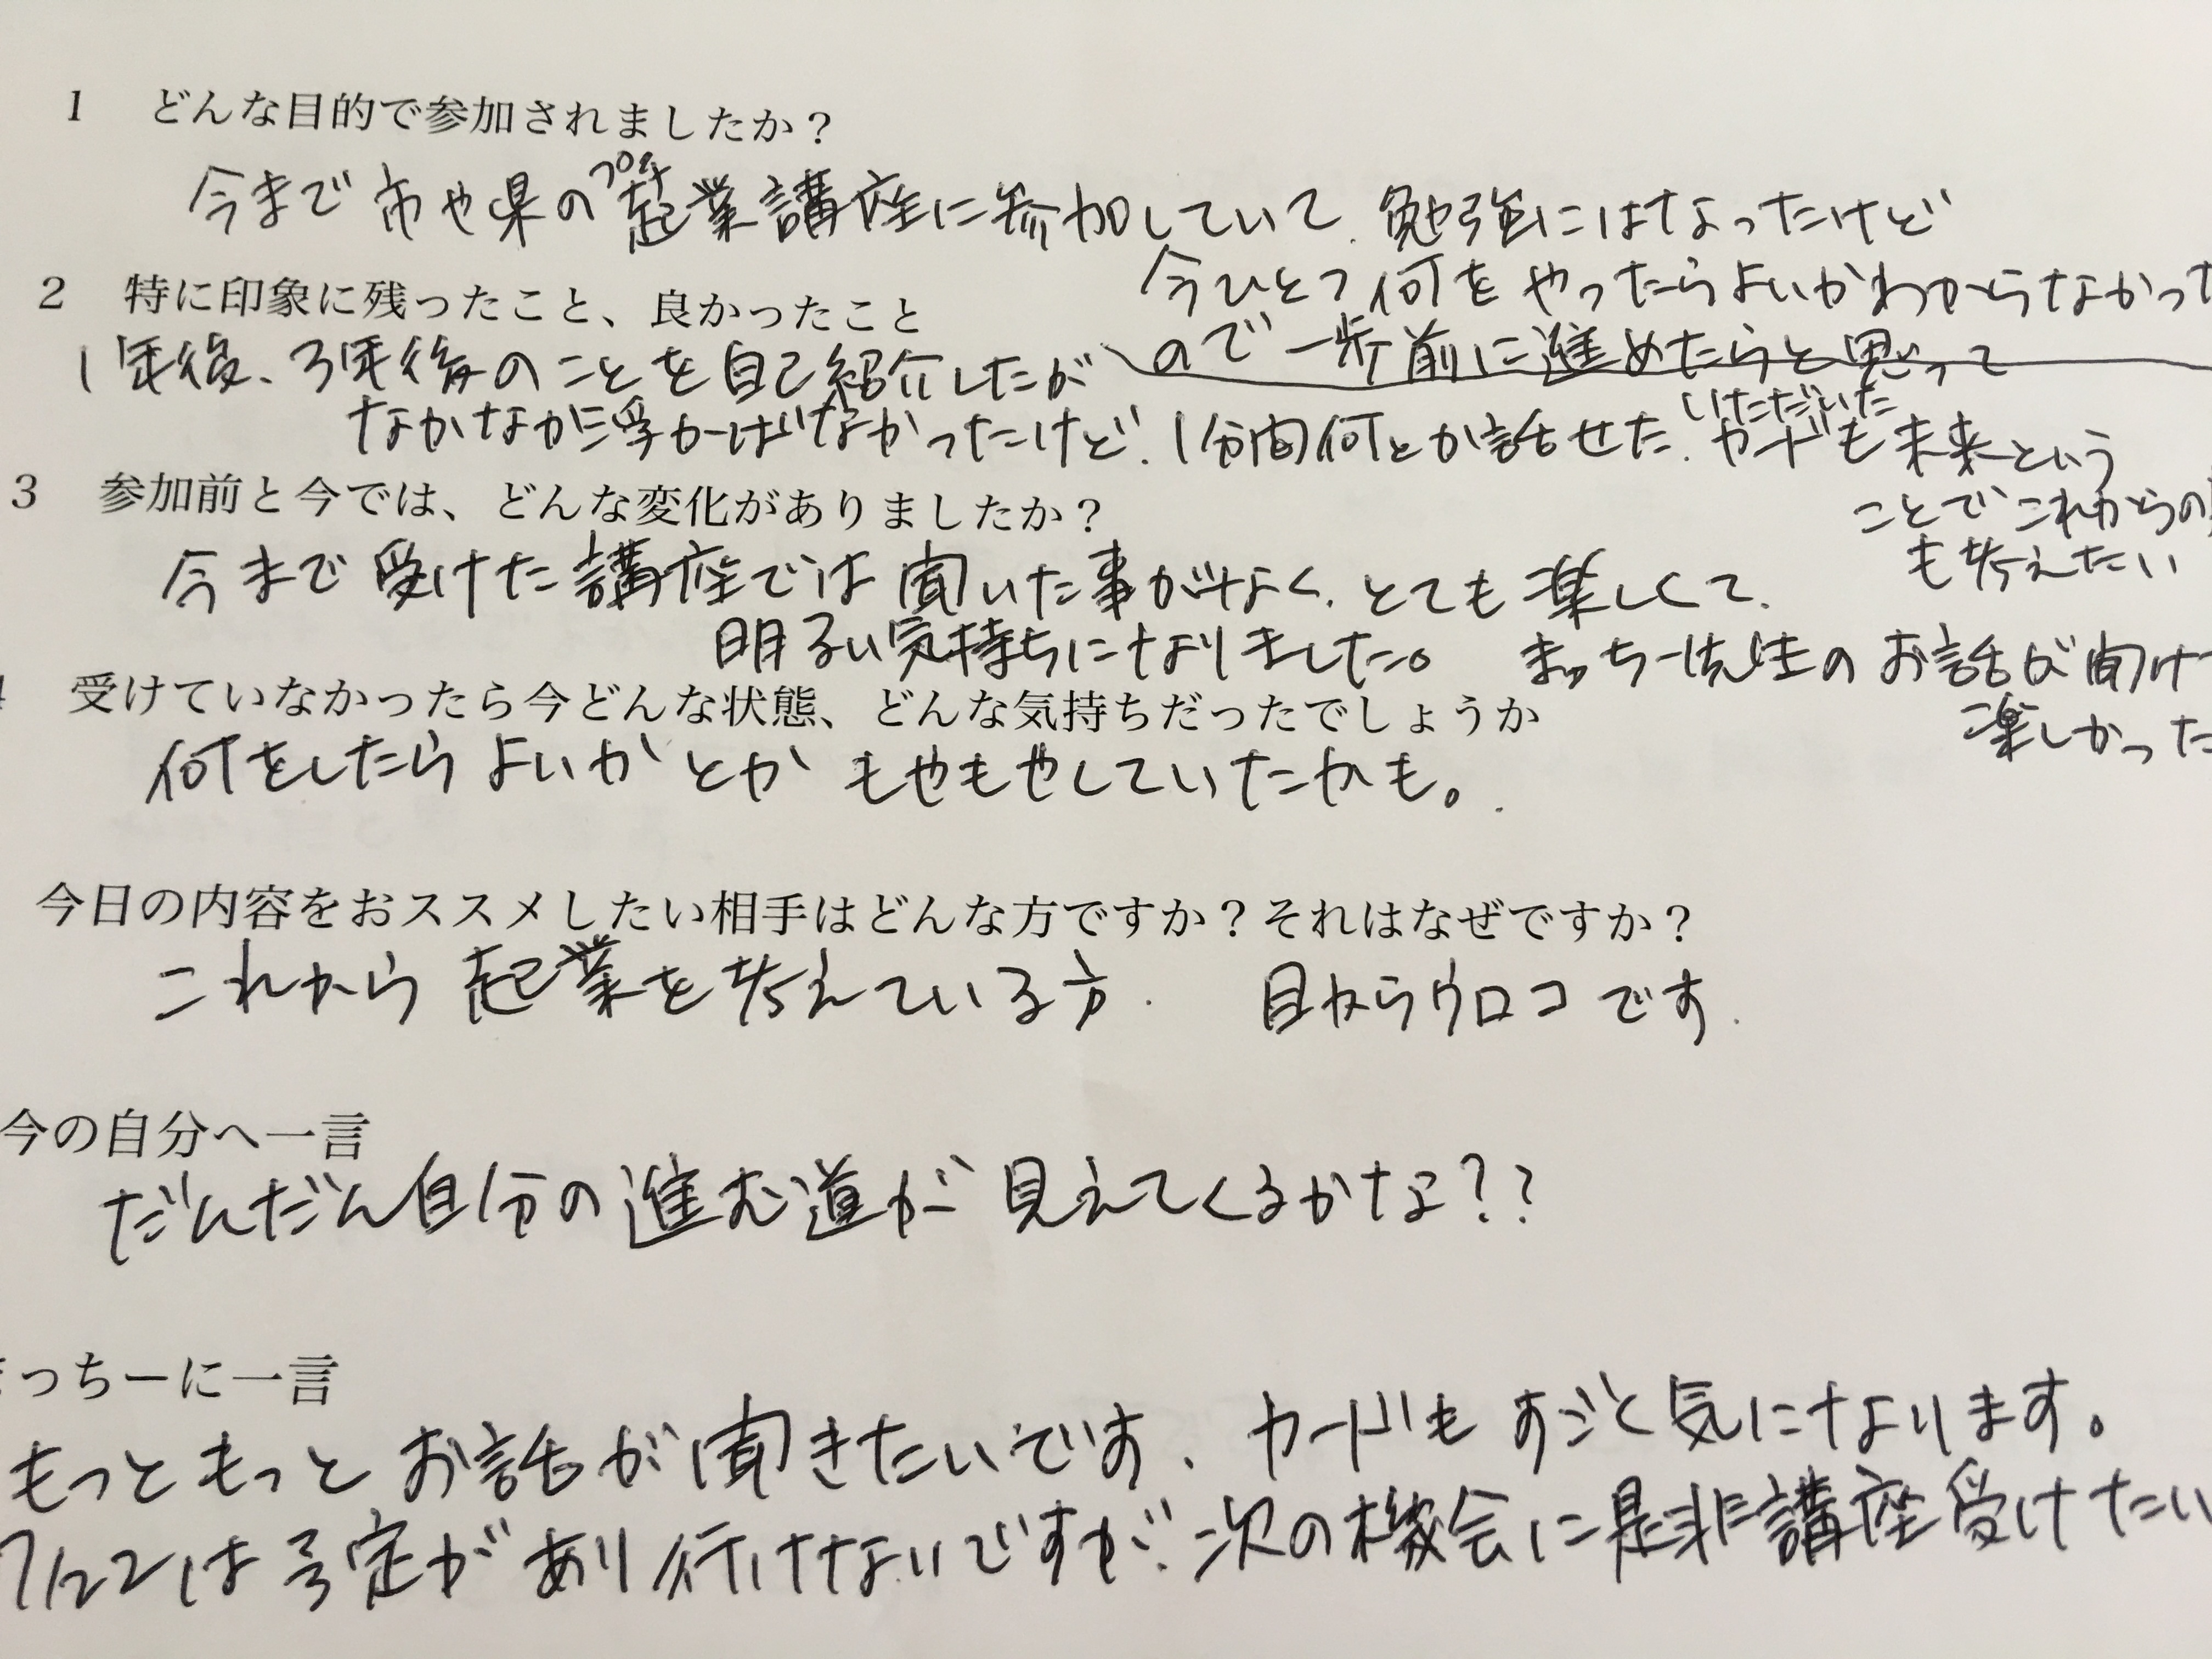 1 どんな目的で参加されましたか？
今まで市や県のプチ起業講座に参加していて、勉強にはなったけど
今ひとつ何をやったらよいかわからなかった
ので一歩前に進めたらと思って
2 特に印象に残ったこと、良かったこと
1年後、3年後のことを自己紹介したが
なかなか浮かばなかったけど、1分間何とか話せた。いただいたカードも未来という
ことでこれからの
も考えたい
3 参加前と今では、どんな変化がありましたか？
今まで受けた講座では聞いた事がなく、とても楽しくて、
明るい気持ちになりました。 まっちー先生のお話が聞けて
楽しかった
4 受けていなかったら今どんな状態、どんな気持ちだったでしょうか
何をしたらよいかとか もやもやしていたかも。
今日の内容をおススメしたい相手はどんな方ですか？それはなぜですか？
これから起業を考えている方. 目からウロコです.
今の自分へ一言
だんだん自分の進む道が見えてくるかな？？
まっちーに一言
もっともっとお話が聞きたいです、カードもすごく気になります。
7/22は予定があり行けないですが、次の機会に是非講座受けたい